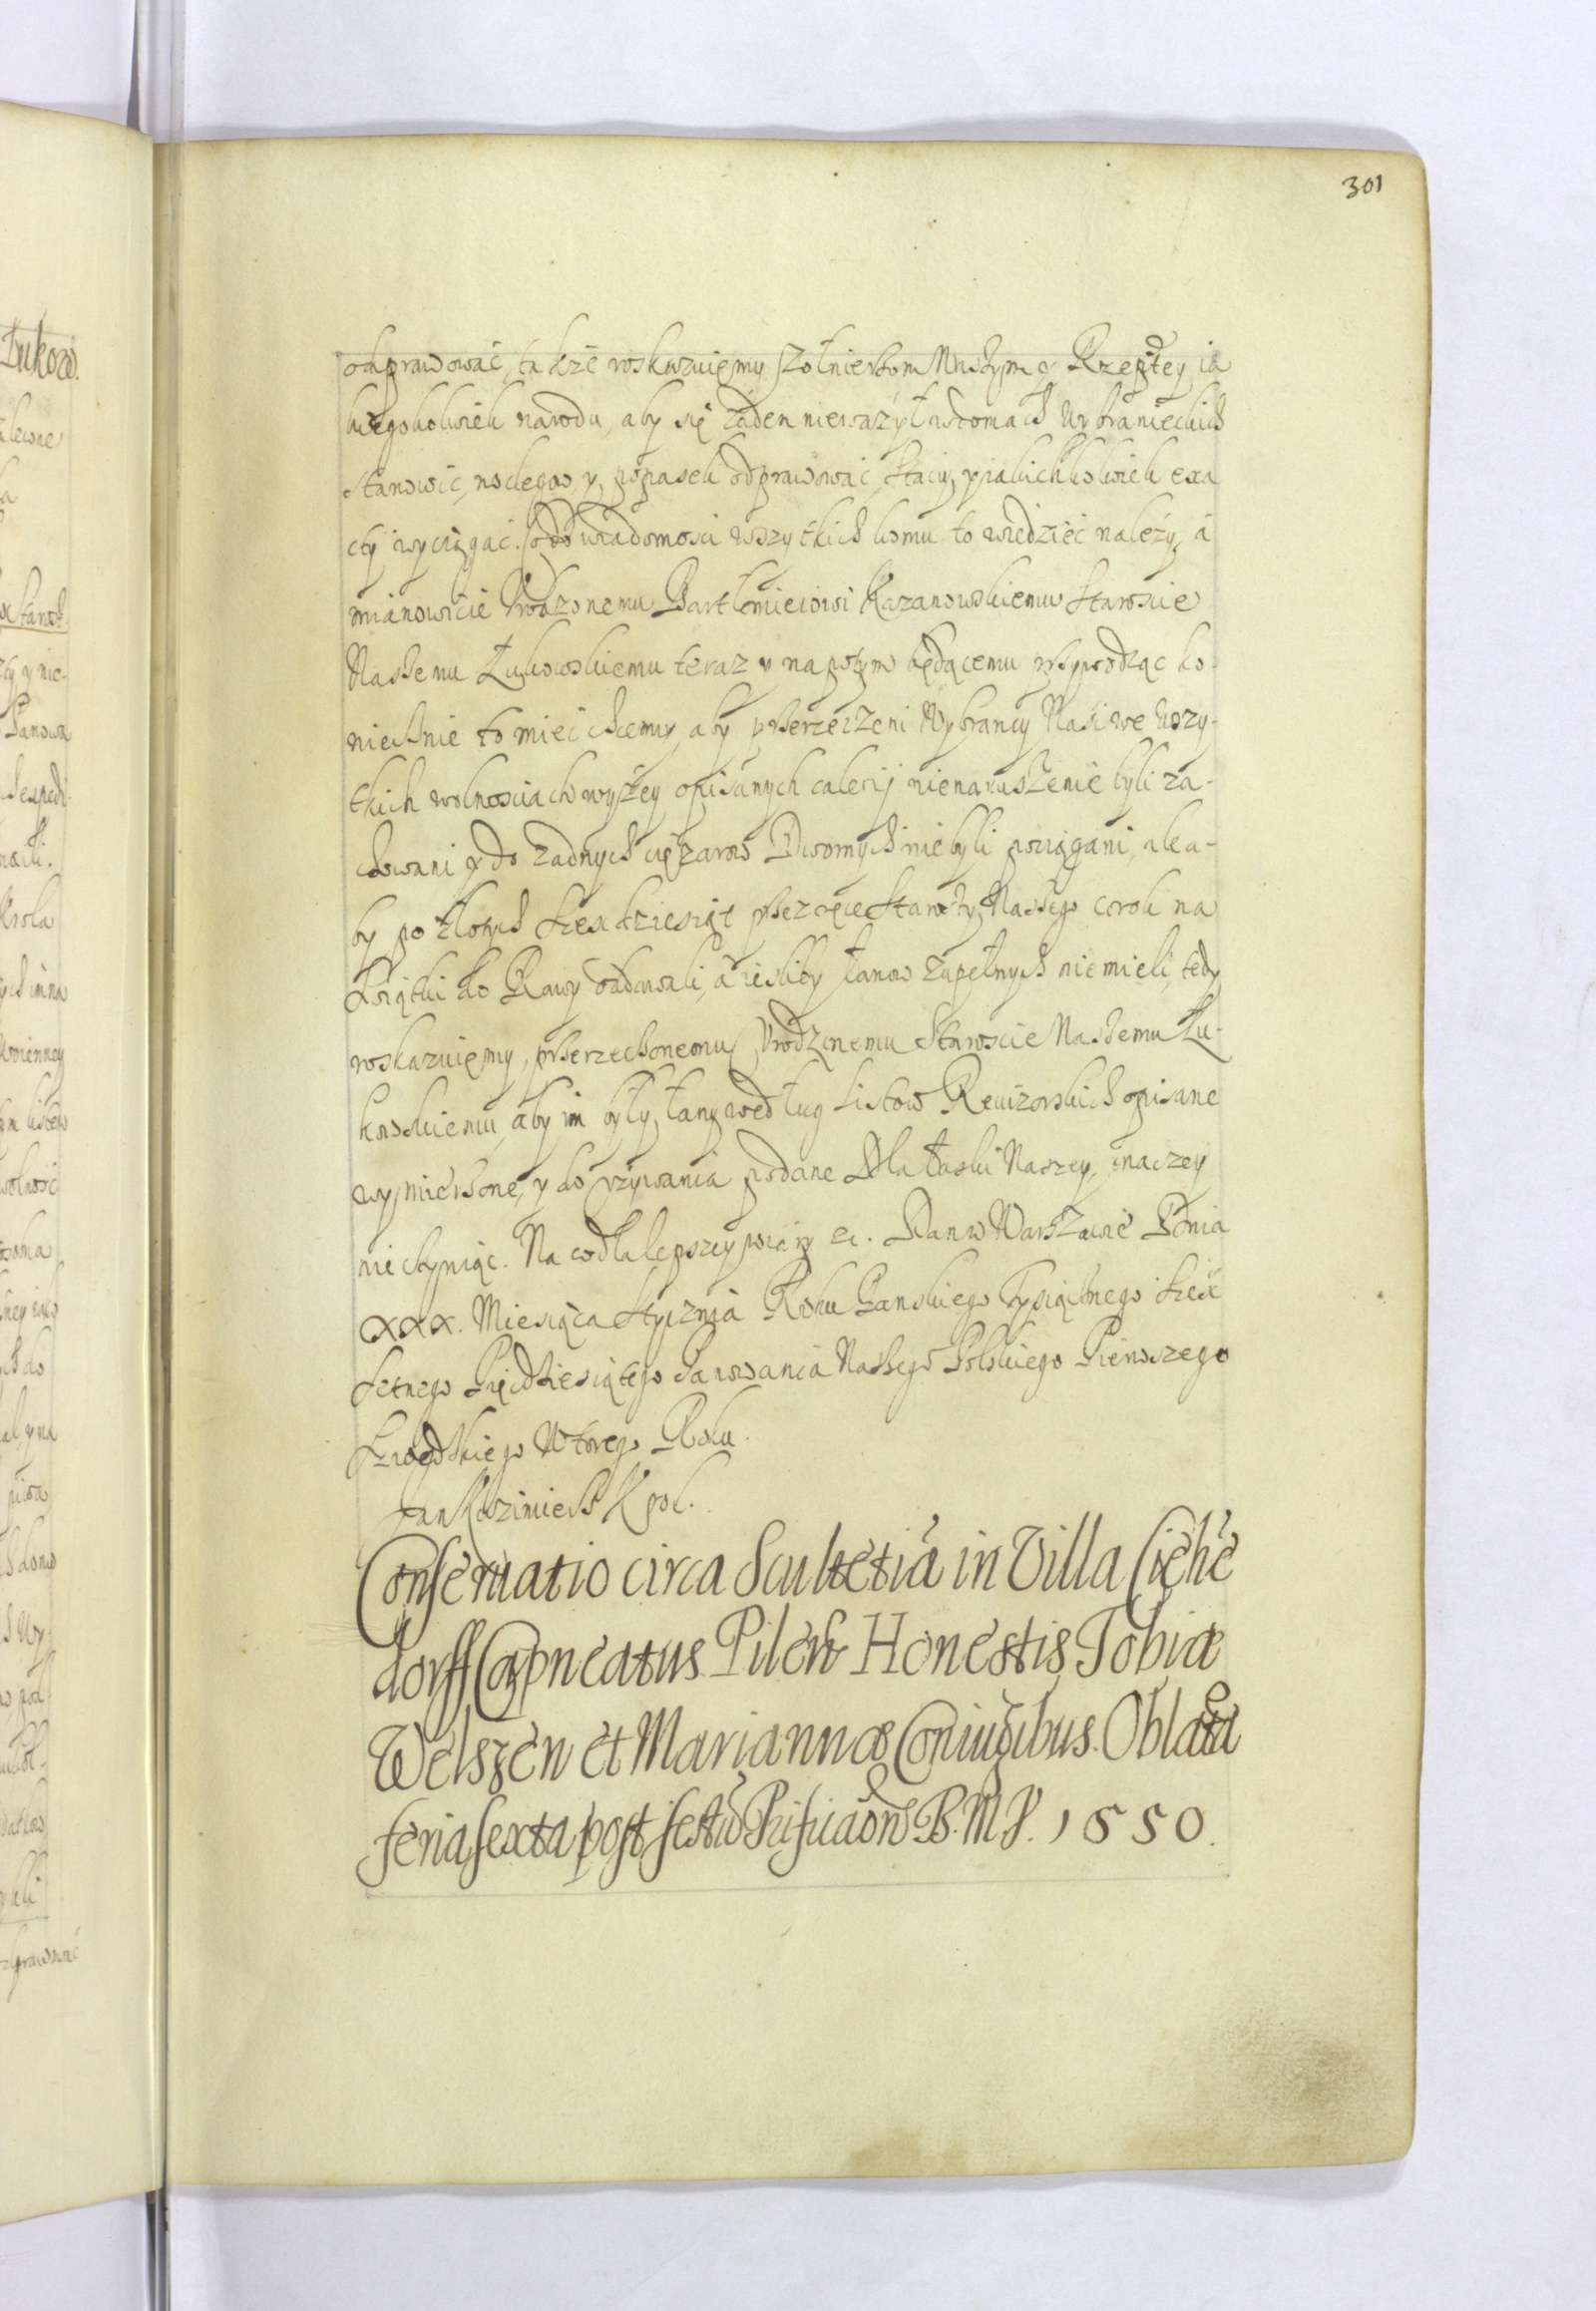 301
odprawować, także roskazuięmy Szołnierzom Naszym y Rzeptey ia
kiegokolwiek narodu, aby się żaden nieważył w domach Wybranieckich
Stanowic, noclegow y popasek odprawowac, stacij y iakichkolwiek exa
cty wyciągac. Co do wiadomosci wszytkich komu to wiedziec nalezy, a
mianowicie Vrodzonemu Bartłomieiowi Kazanowskiemu Staroscie
Naszemu Łukowskiemu teraz y napotym będącemu przywodząc ko-
niecznie to miec chcemy, aby przerzeczeni Wybrancy Nasi we wszy-
tkich wolnosciach wyżey opisanych calerij nienaruszenie byli za-
chowani y do żadnych ciężarow Dwornych nie byli pociągani, ale a-
by po złotych szescdziesiąt przez ręce Starosty Naszego corok na
Swiątki do Rawy oddawali, a iesliby łanow zupełnych nie mieli, tedy
roskazuięmy, przerzeczonemu Vrodzonemu Staroscie Naszemu Łu-
kowskiemu, aby im były łany według Listow Rewizorskich opisane
wymierzone, y do vzywania podane Dla łaski Naszey, inaczey
nie czyniąc. Na co dla lepszey wiary &c. Dan w Warszawie Dnia
XXX. Miesiąca Stycznia Roku Panskiego Tysiącnego Szesc
setnego Pięcdziesiątego Panowania Naszego Polskiego Pierwszego
Szwedzkiego Wtorego Roku.
Jan Kazimierz Krol.
Conseruatio circa Scultetiā in Villa Cichē
dorff Capneatus Pilen̄ Honestis Tobiæ
Welszen et Mariannæ Coniugibus. Oblata
feria sexta post festū Purificaōnis B. M. V. 1650.